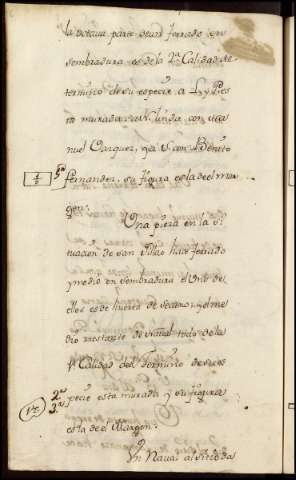 la octava parte de un ferrado en
sembradura es de la 2ª Calidad de
termino de su especie a L y P es
to murada
nuel Vazquez, y a S. con Benito
1/8 5º Fernandez, su figura es la del mar
gen:
Una pieza en la si
tuacion de san hace ferrado
y medio en sembradura el Uno de
ellos es de huerta de secano, y el me
dio restante de Naval todo de la
1ª Calidad del termino de su es
1½ 2º 3º pecie esta murado y su figura
es la de el Margen:
Un Naval al sitio da